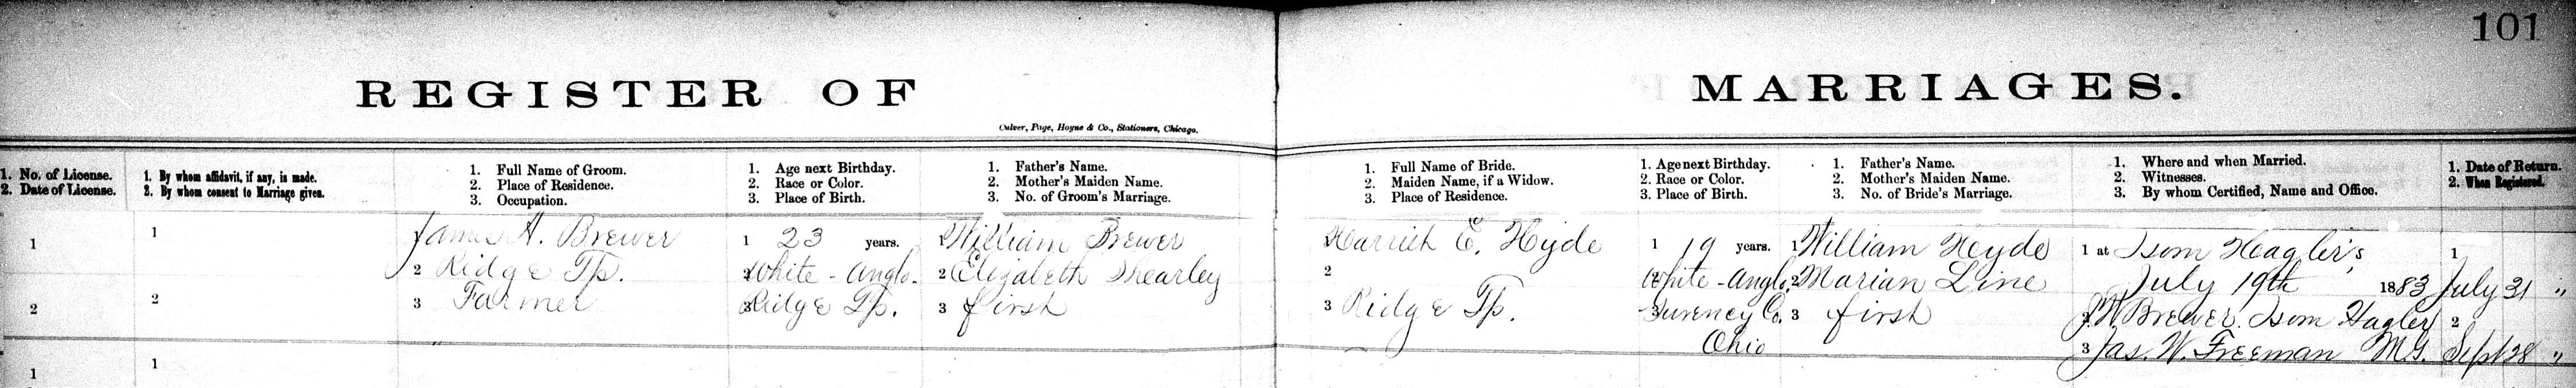 101
REGISTER OF MARRIAGES.
Culver, Page, Hoyne & Co., Stationers, Chicago.
1. No. of License.
2. Date of License.
1. By whom affidavit, if any, is made.
2. By whom consent to Marriage given.
1. Full Name of Groom.
2. Place of Residence.
3. Occupation.
1. Age next Birthday.
2. Race or Color.
3. Place of Birth.
1. Father's Name.
2. Mother's Maiden Name.
3. No. of Groom's Marriage.
1. Full Name of Bride.
2. Maiden Name, if a Widow.
3. Place of Residence.
1. Age next Birthday.
2. Race or Color.
3. Place of Birth.
1. Father's Name.
2. Mother's Maiden Name.
3. No. of Bride's Marriage.
1. Where and when Married.
2. Witnesses.
3. By whom Certified, Name and Office.
1. Date of Return.
2. When Registered.
1
2
1
2
James A. Brewer
2 Ridge Tp.
3 Farmer
1 23 years.
2 White - Anglo.
3 Ridge Tp.
1 William Brewer
2 Elizabeth Shearley
3 first
Harriet E. Hyde
2
3 Ridge Tp.
1 19 years.
White - Anglo.
Co.
Ohio
1 William Heyde
2 Marian Line
3 first
1 at Isom Hagler's
July 19th 1883
2 Brewer. Isom Hagler
3 Jas. W. Freeman M.G.
1
July 31 "
2
Sept 28 "
1
1